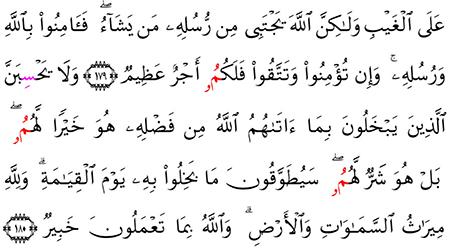 عَلَى ٱلْغَيْبِ وَلَٰكِنَّ ٱللَّهَ يَجْتَبِى مِن رُّسُلِهِۦ مَن يَشَآءُ ۖ فَـَٔامِنُوا۟ بِٱللَّهِ
وَرُسُلِهِۦ ۚ وَإِن تُؤْمِنُوا۟ وَتَتَّقُوا۟ فَلَكُمُۥٓ أَجْرٌ عَظِيمٌ ١٧٩ وَلَا يَحْسِبَنَّ
ٱلَّذِينَ يَبْخَلُونَ بِمَآ ءَاتَىٰهُمُ ٱللَّهُ مِن فَضْلِهِۦ هُوَ خَيْرًا لَّهُمُۥ ۖ
بَلْ هُوَ شَرٌّ لَّهُمُۥ ۖ سَيُطَوَّقُونَ مَا بَخِلُوا۟ بِهِۦ يَوْمَ ٱلْقِيَٰمَةِ ۗ وَلِلَّهِ
مِيرَٰثُ ٱلسَّمَٰوَٰتِ وَٱلْأَرْضِ ۗ وَٱللَّهُ بِمَا تَعْمَلُونَ خَبِيرٌ ١٨٠